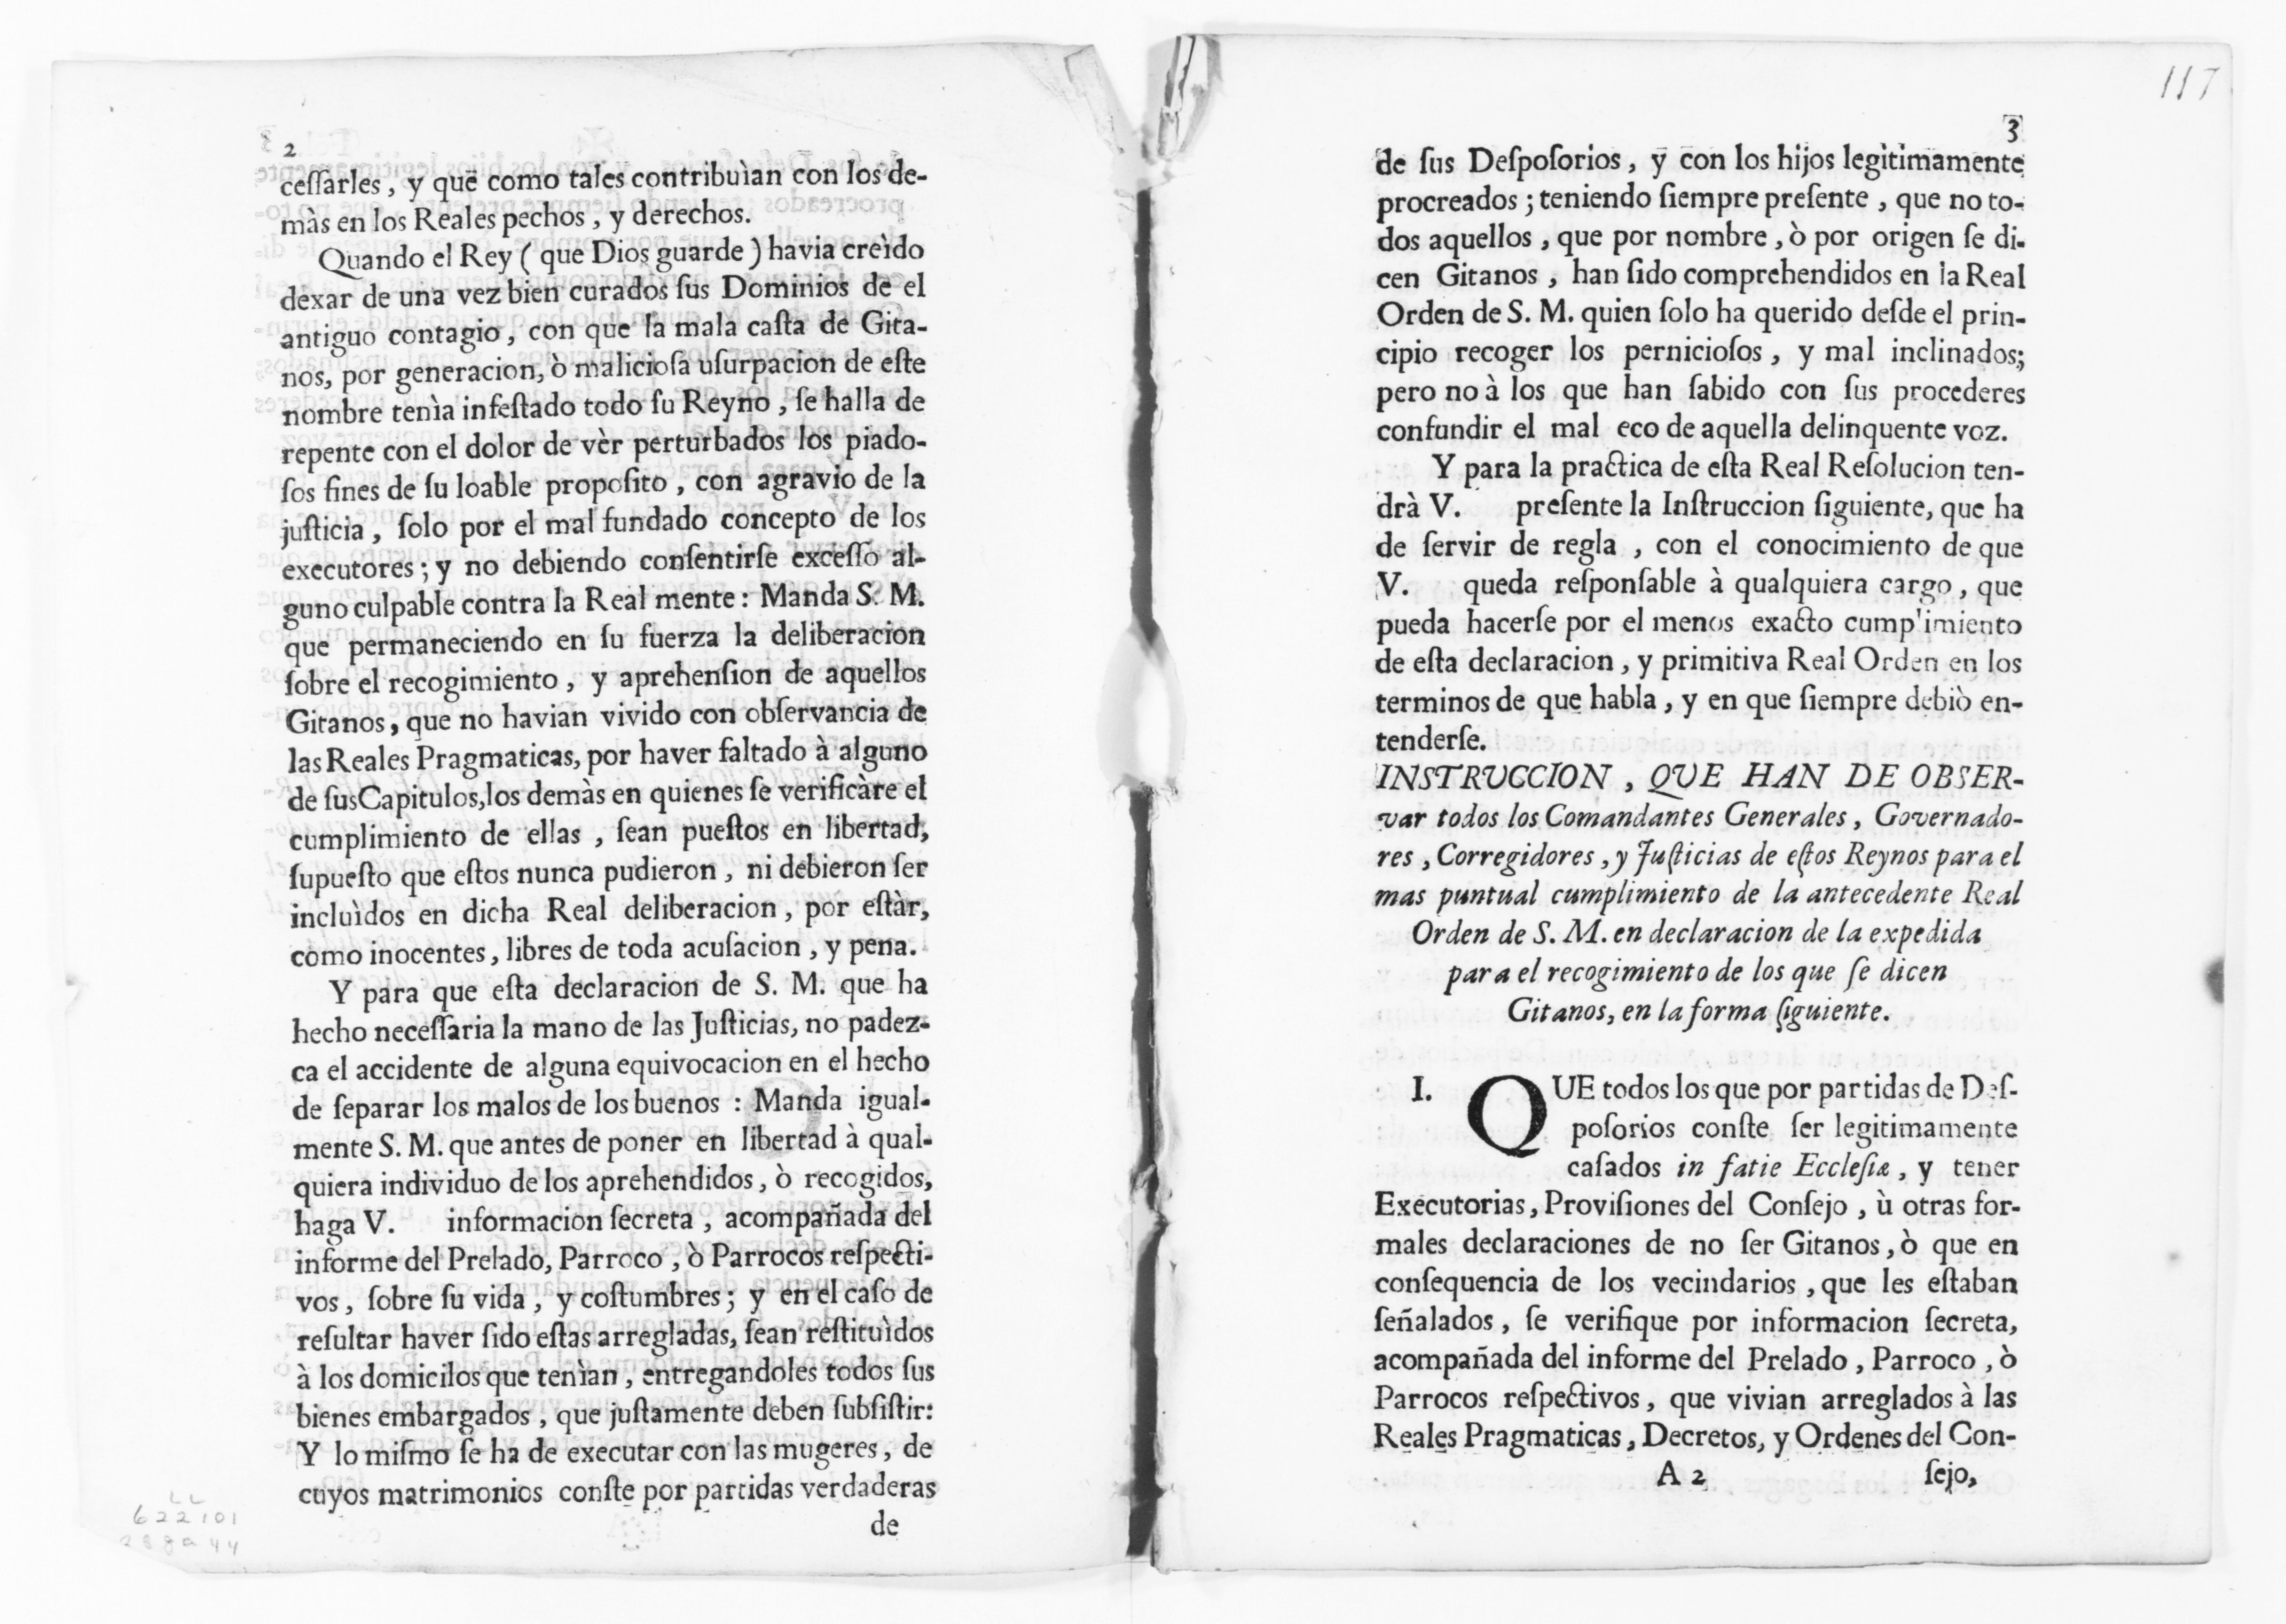 2
ceſſarles, y que como tales contribuìan con los de-
màs en los Reales pechos, y derechos.
Quando el Rey (que Dios guarde) havia creìdo
dexar de una vez bien curados ſus Dominios de el
antiguo contagio, con que la mala caſta de Gita-
nos, por generacion, ò malicioſa uſurpacion de eſte
nombre tenìa infeſtado todo ſu Reyno, ſe halla de
repente con el dolor de vèr perturbados los piado-
ſos fines de ſu loable propoſito, con agravio de la
juſticia, ſolo por el mal fundado concepto de los
executores; y no debiendo conſentirſe exceſſo al-
guno culpable contra la Real mente: Manda S. M.
que permaneciendo en ſu fuerza la deliberacion
ſobre el recogimiento, y aprehenſion de aquellos
Gitanos, que no havian vivido con obſervancia de
las Reales Pragmaticas, por haver faltado à alguno
de ſus Capitulos, los demàs en quienes ſe verificàre el
cumplimiento de ellas, ſean pueſtos en libertad,
ſupueſto que eſtos nunca pudieron, ni debieron ſer
incluìdos en dicha Real deliberacion, por eſtàr,
como inocentes, libres de toda acuſacion, y pena.
Y para que eſta declaracion de S. M. que ha
hecho neceſſaria la mano de las Juſticias, no padez-
ca el accidente de alguna equivocacion en el hecho
de ſeparar los malos de los buenos: Manda igual-
mente S. M. que antes de poner en libertad à qual-
quiera individuo de los aprehendidos, ò recogidos,
haga V. informacion ſecreta, acompañada del
informe del Prelado, Parroco, ò Parrocos reſpecti-
vos, ſobre ſu vida, y coſtumbres; y en el caſo de
reſultar haver ſido eſtas arregladas, ſean reſtituìdos
à los domicilos que tenìan, entregandoles todos ſus
bienes embargados, que juſtamente deben ſubſiſtir:
Y lo miſmo ſe ha de executar con las mugeres, de
cuyos matrimonios conſte por partidas verdaderas
de
LL
622101
288a44
117
3
de ſus Deſpoſorios, y con los hijos legìtimamente
procreados; teniendo ſiempre preſente, que no to-
dos aquellos, que por nombre, ò por origen ſe di-
cen Gitanos, han ſido comprehendidos en la Real
Orden de S. M. quien ſolo ha querido deſde el prin-
cipio recoger los pernicioſos, y mal inclinados;
pero no à los que han ſabido con ſus procederes
confundir el mal eco de aquella delinquente voz.
Y para la practica de eſta Real Reſolucion ten-
drà V. preſente la Inſtruccion ſiguiente, que ha
de ſervir de regla, con el conocimiento de que
V. queda reſponſable à qualquiera cargo, que
pueda hacerſe por el menos exacto cumplimiento
de eſta declaracion, y primitiva Real Orden en los
terminos de que habla, y en que ſiempre debiò en-
tenderſe.
INSTRVCCION, QVE HAN DE OBSER-
var todos los Comandantes Generales, Governado-
res, Corregidores, y Juſticias de eſtos Reynos para el
mas puntual cumplimiento de la antecedente Real
Orden de S. M. en declaracion de la expedida
para el recogimiento de los que ſe dicen
Gitanos, en la forma ſiguiente.
I. QUE todos los que por partidas de Deſ-
poſorios conſte ſer legitimamente
caſados in fatie Eccleſiæ, y tener
Executorias, Proviſiones del Conſejo, ù otras for-
males declaraciones de no ſer Gitanos, ò que en
conſequencia de los vecindarios, que les eſtaban
ſeñalados, ſe verifique por informacion ſecreta,
acompañada del informe del Prelado, Parroco, ò
Parrocos reſpectivos, que vivian arreglados à las
Reales Pragmaticas, Decretos, y Ordenes del Con-
A 2 ſejo,